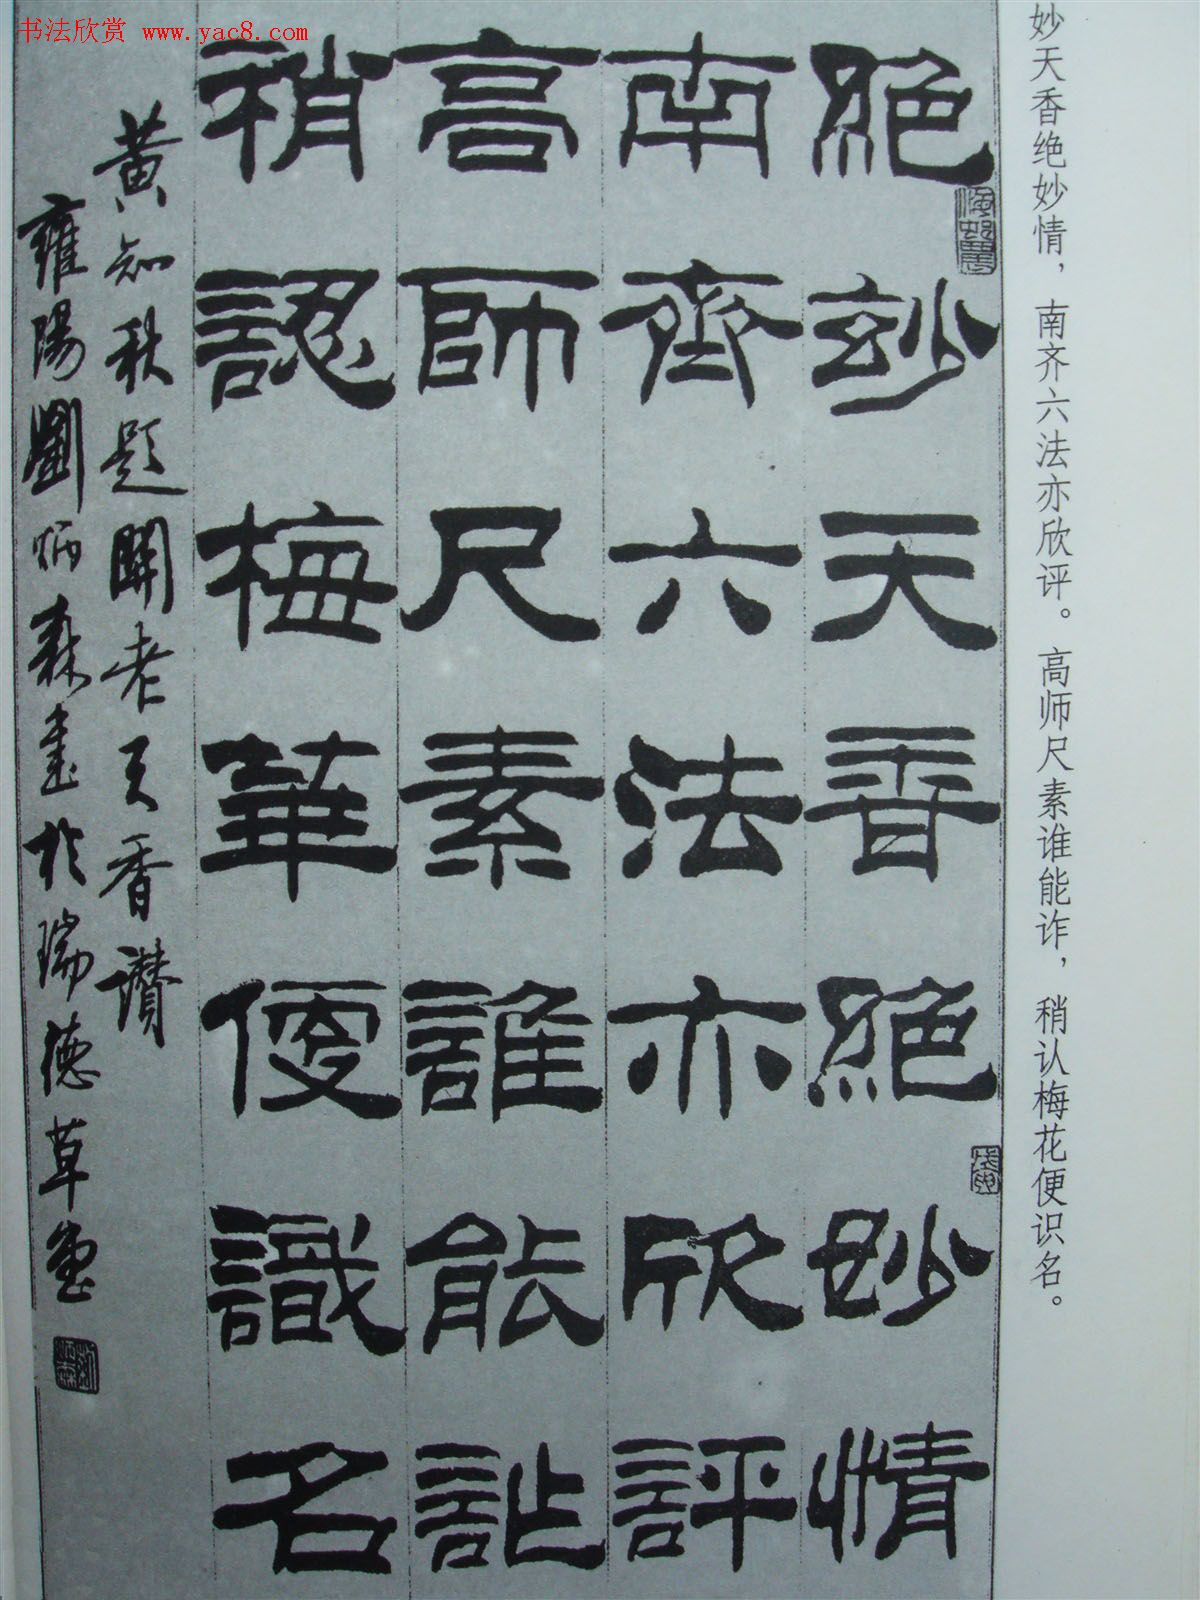 书法欣赏 www.yac8.com
妙天香绝妙情，南齐六法亦欣评。高师尺素谁能诈，稍认梅花便识名。
絕妙天香絕妙情
南齊六法亦欣評
高師尺素誰能詐
稍認梅華便識名
黃知秋題關老天香讚
雍陽劉炳森書於瑞德草堂